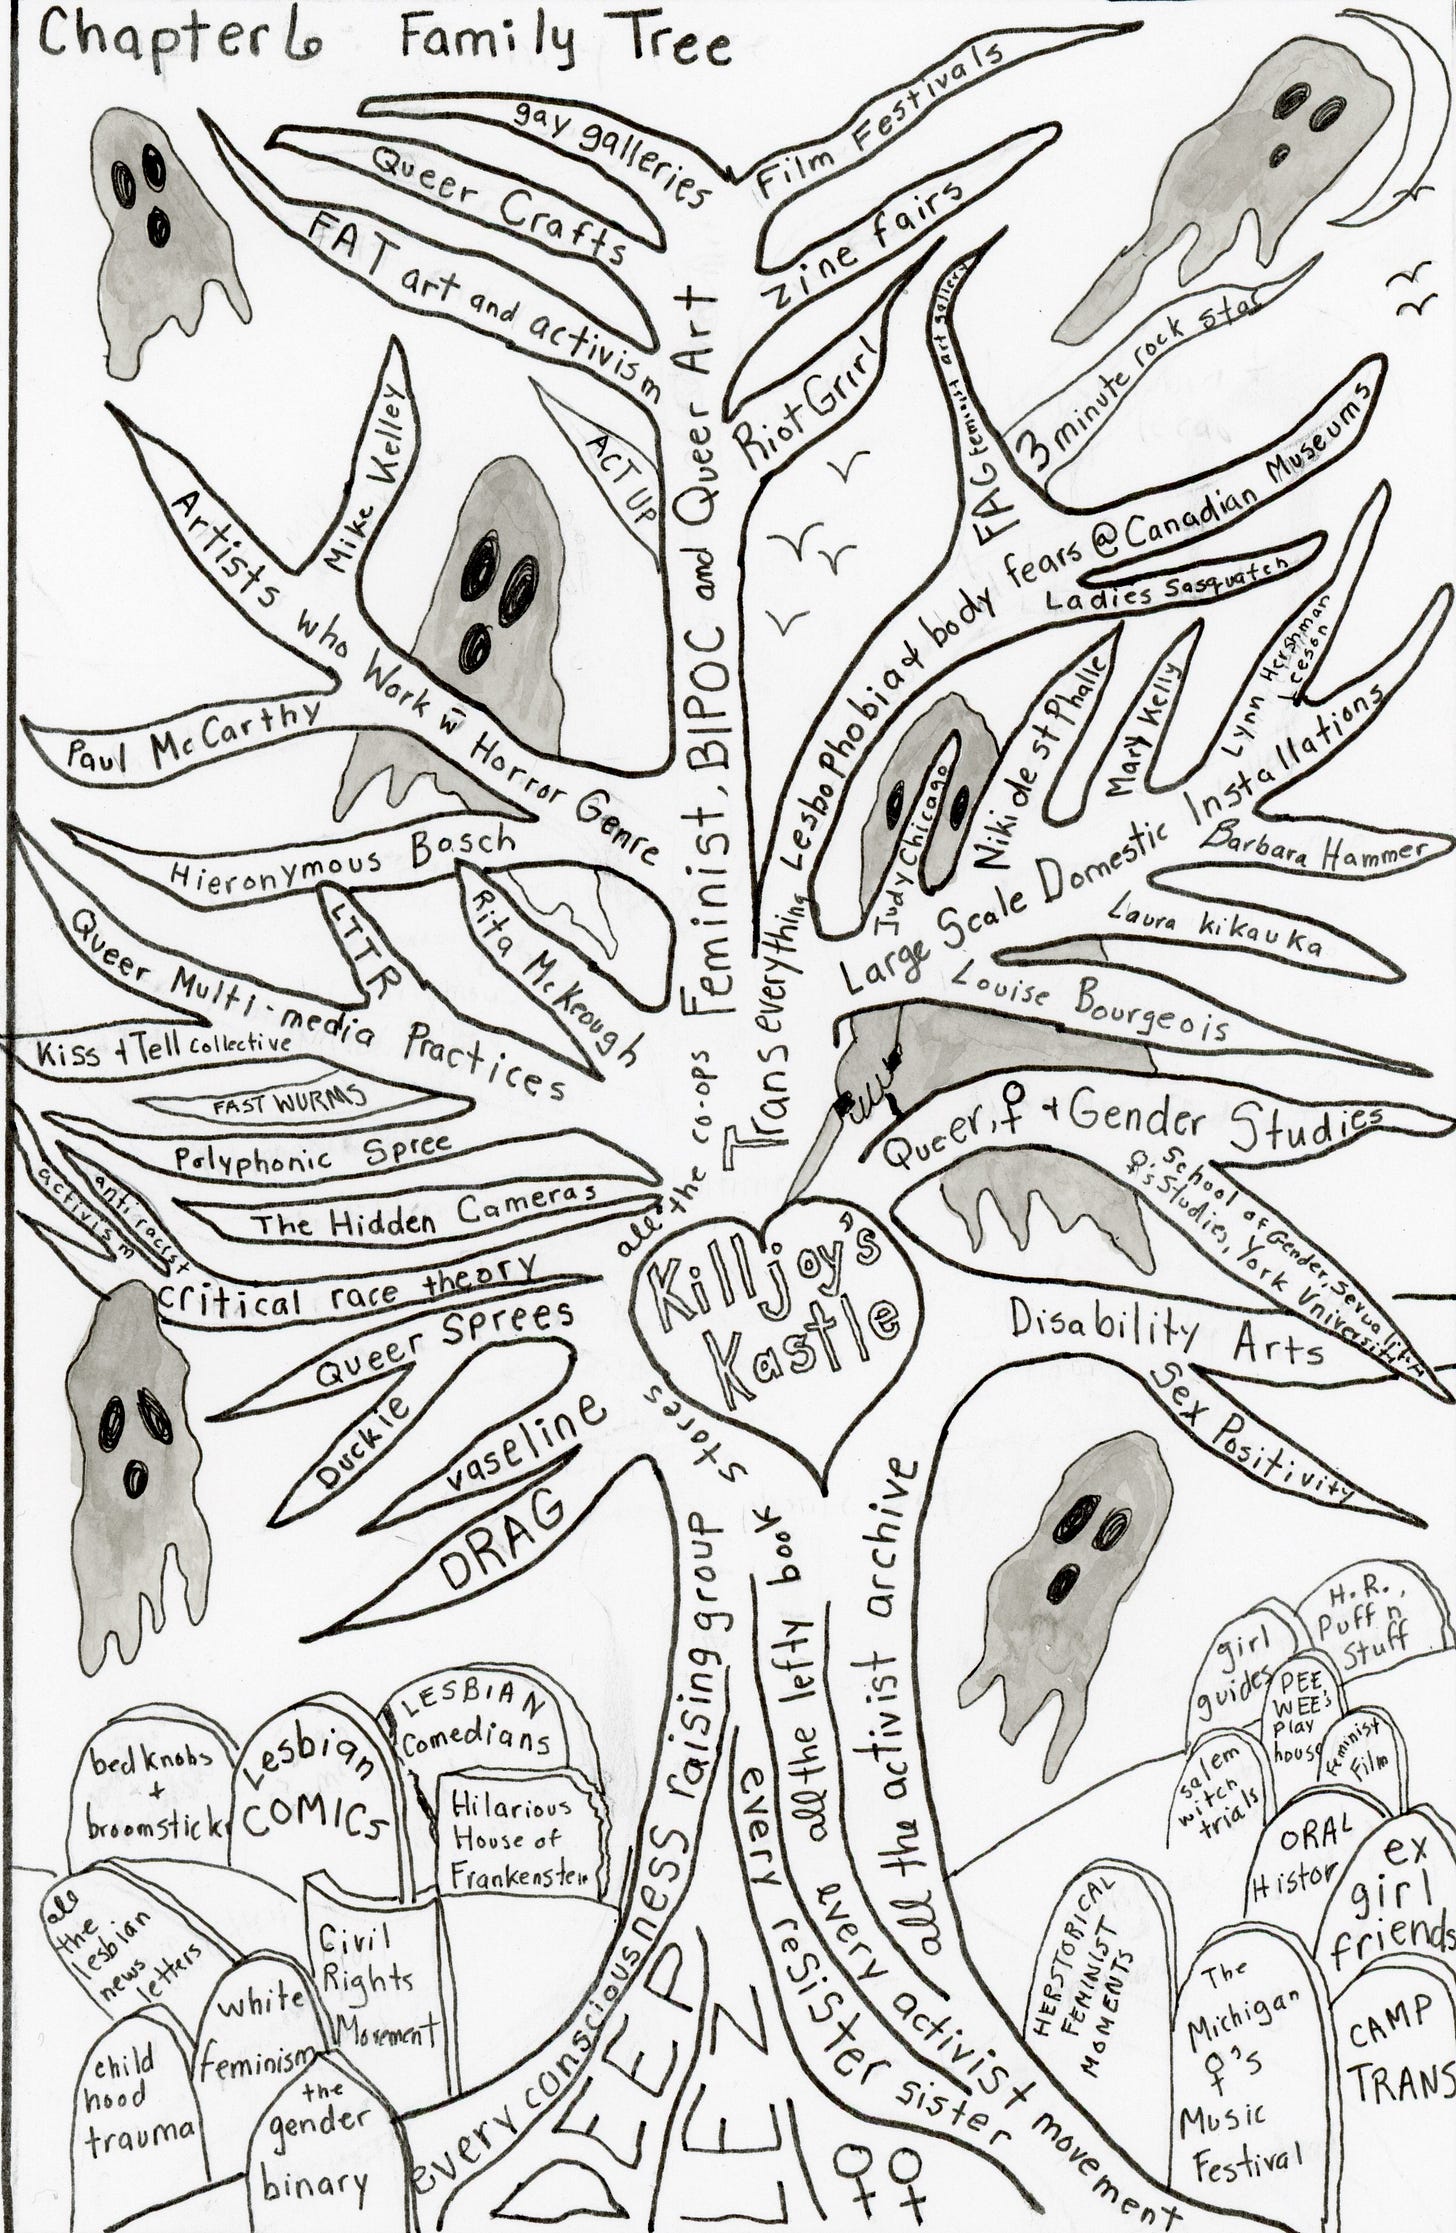 Chapter 6 Family Tree
gay galleries
Queer Crafts
FAT art and activism
Film Festivals
Zine fairs
Riot Grrrl
FAG feminist art gallery
3 minute rock star
ACT UP
Mike Kelley
Artists who Work w̄ Horror Genre
Paul McCarthy
Hieronymous Bosch
Feminist, BIPOC and Queer Art
Lesbophobia & body fears @ Canadian Museums
Ladies Sasquatch
Judy Chicago
Niki de st Phalle
Mary Kelly
Lynn Hershman Leeson
Large Scale Domestic Installations
Barbara Hammer
Laura Kikauka
Louise Bourgeois
Trans everything
LTTR
Rita McKeough
Queer Multi-media Practices
Kiss & Tell collective
FASTWURMS
Polyphonic Spree
The Hidden Cameras
anti racist
activism
critical race theory
Queer Sprees
Duckie
vaseline
DRAG
all the co-ops
Killjoy's
Kastle
Queer, ♀ & Gender Studies
School of Gender, Sexuality &
♀'s Studies, York University
Disability Arts
Sex Positivity
every consciousness raising group
all the lefty book
stores
all the activist archive
every activist movement
every resister sister
DEEP
LEZ
♀♀
bedknobs
+
broomsticks
Lesbian
COMICS
LESBIAN
Comedians
Hilarious
House of
Frankenstein
all
the
lesbian
news
letters
Civil
Rights
Movement
white
feminism
child
hood
trauma
the
gender
binary
girl
guides
H.R.
Puff n
Stuff
PEE
WEE'S
play
house
feminist
Film
salem
witch
trials
ORAL
History
ex
girl
friends
HERSTORICAL
FEMINIST
MOMENTS
The
Michigan
♀'s
Music
Festival
CAMP
TRANS